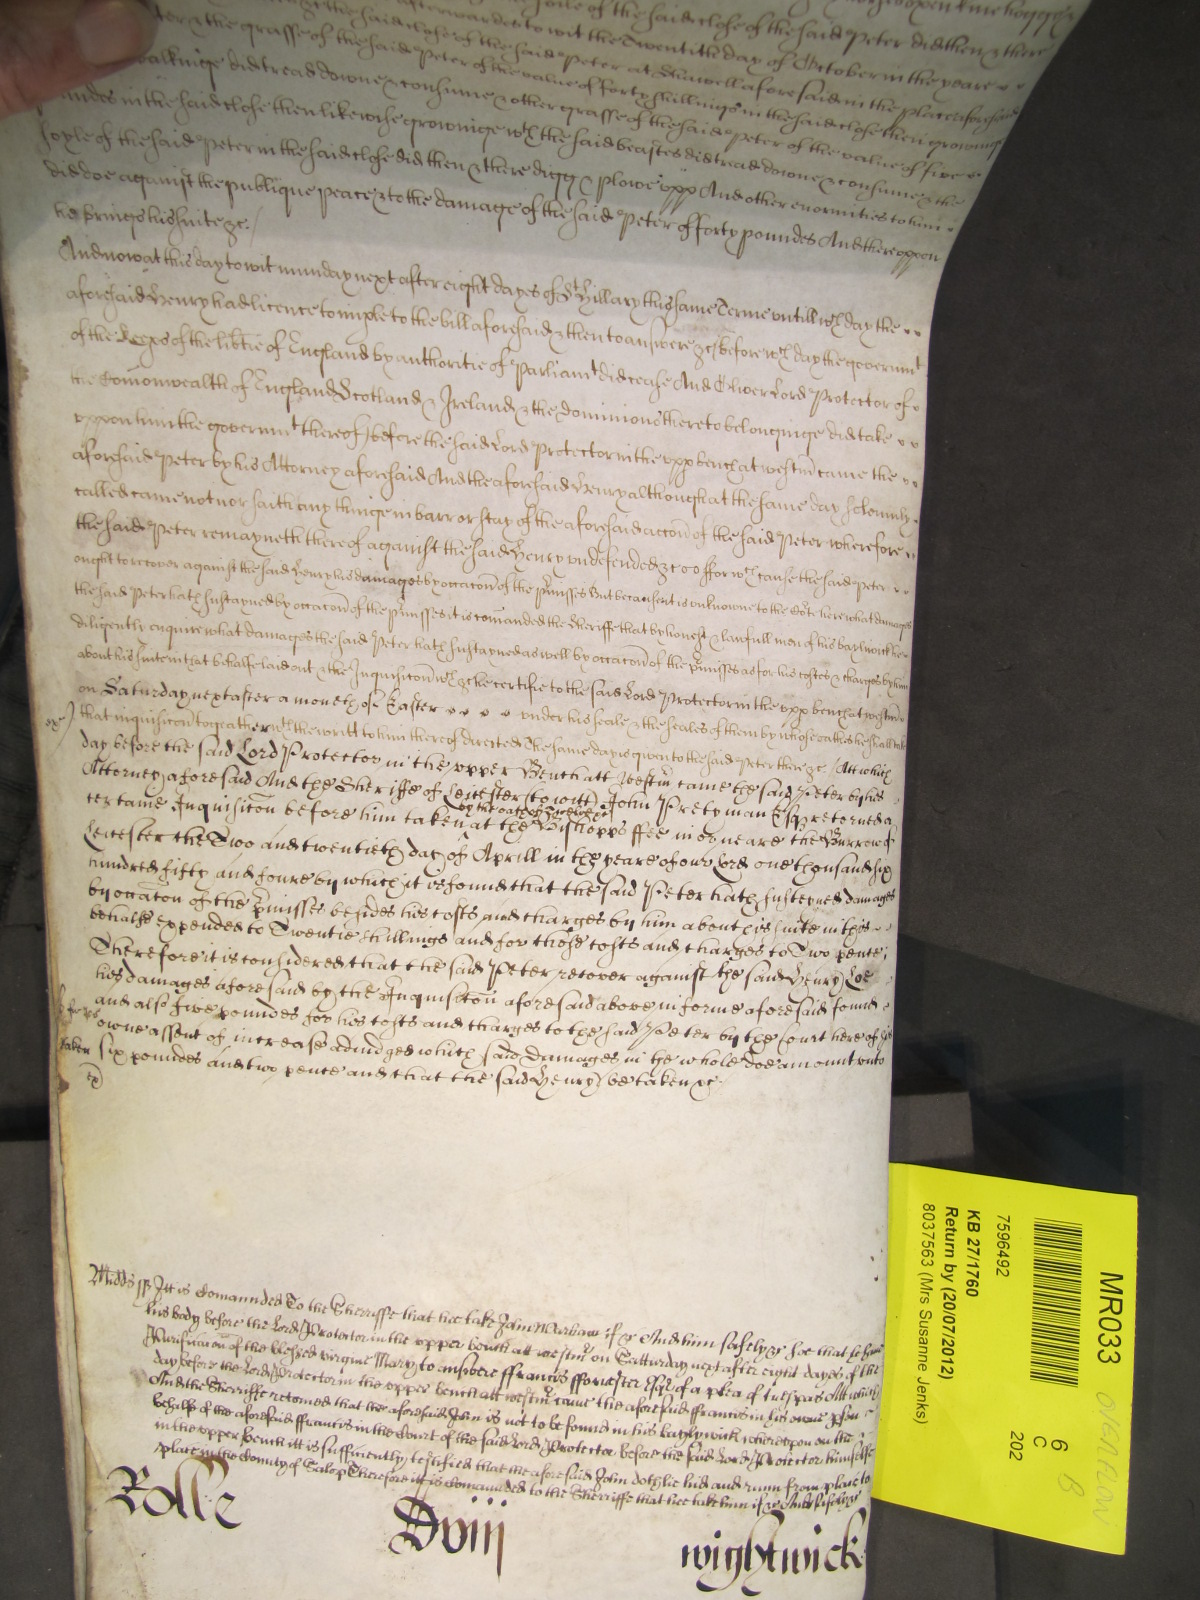 afterwards to wit the Twentith day of October in the yeare
the grasse of the said close of the said Peter at aforesaid in the place aforesaid
walkinge did tread downe & consume & other grasse of the said Peter of the value of five
poundes in the said close then likewise growinge wth the said beastes did tread downe & consume & the
soyle of the said Peter in the said close did then & there digg & plowe upp And other enormities to him
did doe against the publique peace & to the damage of the said Peter of forty poundes And thereuppon
he brings his suite &c /
And now at this day to wit munday next after eight dayes of St Hillary this same Terme untill wch day the
aforesaid Henry had licence to imple to the bill aforesaid & then to answere &c (before wch day the governmt
of the Keeps of the libtie of England by authoritie of Parliamt did cease And Oliver Lord Protector of
the Comonwealth of England Scotland & Ireland & the Dominions thereto belonginge did take
uppon him the governmt thereof) before the said Lord Protector in the upp bench at westm came the
aforesaid Peter by his Attorney aforesaid And the aforesaid Henry although at the same day solemnly
called came not nor saith any thinge in barr or stay of the aforesaid accon of the said Peter wherefore
the said Peter remayneth thereof against the said Henry undefended &c ffor wch cause the said Peter
ought to recover against the said Henry his damages by occacon of the pmisses But because it is unknowne to the Cote here what damages
the said Peter hath sustayned by occacon of the pmisses it is comanded the Sheriffe that by honest & lawfull men of his baylywick hee
diligently enquire what damages the said Peter hath sustayned as well by occacon of the pmisses as for his costes & charges by him
about his suite in that behalfe laid out & the Inquisicon wch &c he certifie to the said Lord Protector in the upp bench at westm
on Saturday next after a moneth of Easter under his seale & the seales of them by whose oathes he shall take
that inquisicon togeather wth the writt to him thereof directed The same day is given to the said Peter there &c / Att which
day before the said Lord Protector in the upper Bench att westm came the said Peter by his
Attorney aforesaid And the Sheriffe of Leicester (to witt) John Pretyman Esq returned a
certame Inquisicon before him taken at the Bishopps ffee in or neare the Burrow of
by the oath of
Leicester the Two and twentieth day of Aprill in the yeare of our Lord one thousand six
hundred fifty and foure by which it is found that the said Peter hath susteyned damages
by occacon of the pmisses besides his costs and charges by him about his suite in this
behalfe expended to Twentie shillings and for those costs and charges to Two pence;
Therefore it is considered that the said Peter recover against the said Henry Coe
his damages aforesaid by the Inquisicon aforesaid above in forme aforesaid found
and also five poundes for his costs and charges to the said Peter by the Court here of his
owne assent of increase adiudged which said damages in the whole doe amount unto
taken
six poundes and two pence and that the said Henry be taken &c
Midds ss Itt is Comannded To the Sherriffe that hee take John if &c And him safely &c soe that he have
his body before the Lord Protector in the upper bench att westm on Satturday next after eight dayes of the
Purification of the blessed virgine Mary to answere ffrancis fforester Esq of a plea of trespas Att which
day before the Lord Protector in the upper bench att westm came the aforesaid ffrancis in his owne pson
And the Sherriffe retorned that the aforesaid John is not to be found in his baylywick whereupon on the
behalfe of the aforesaid ffrancis in the Court of the said Lord Protector before the said Lord Protector himselfe
in the upper bench itt is sufficiently testified that the aforesaid John doth lie hid and runn from place to
place in the County of Salop Therefore itt is comannded to the Sherriffe that hee take him if &c And safely &c
Rolle Dviij wightwick
MR033
6
C
202
7596492
KB 27/1760
Return by (20/07/2012)
8037563 (Mrs Susanne Jenks)